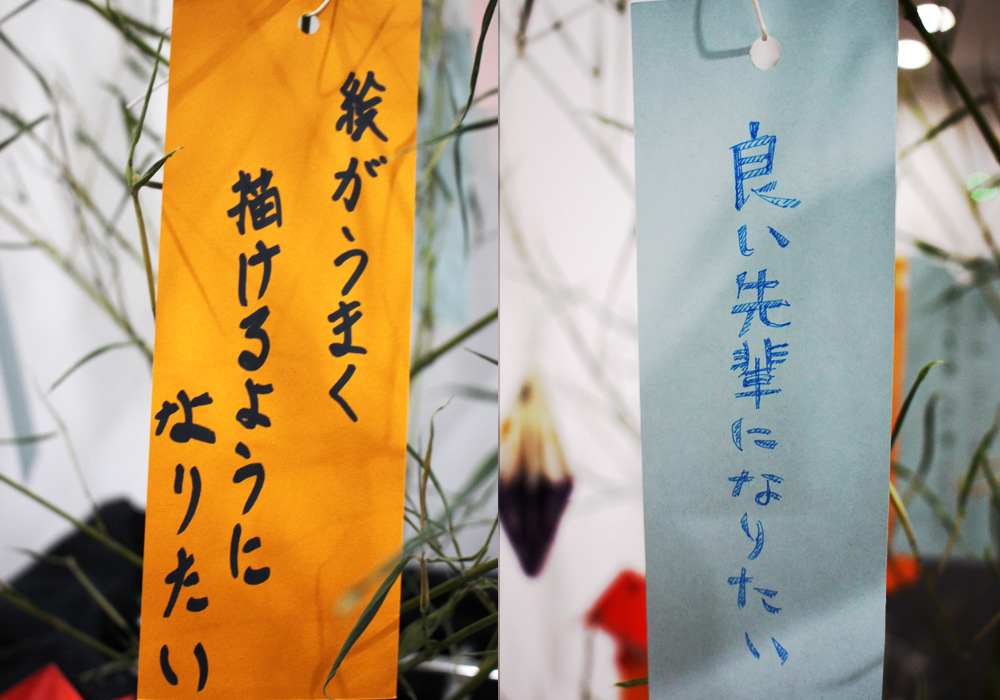 絵がうまく
描けるように
なりたい
良い先輩になりたい